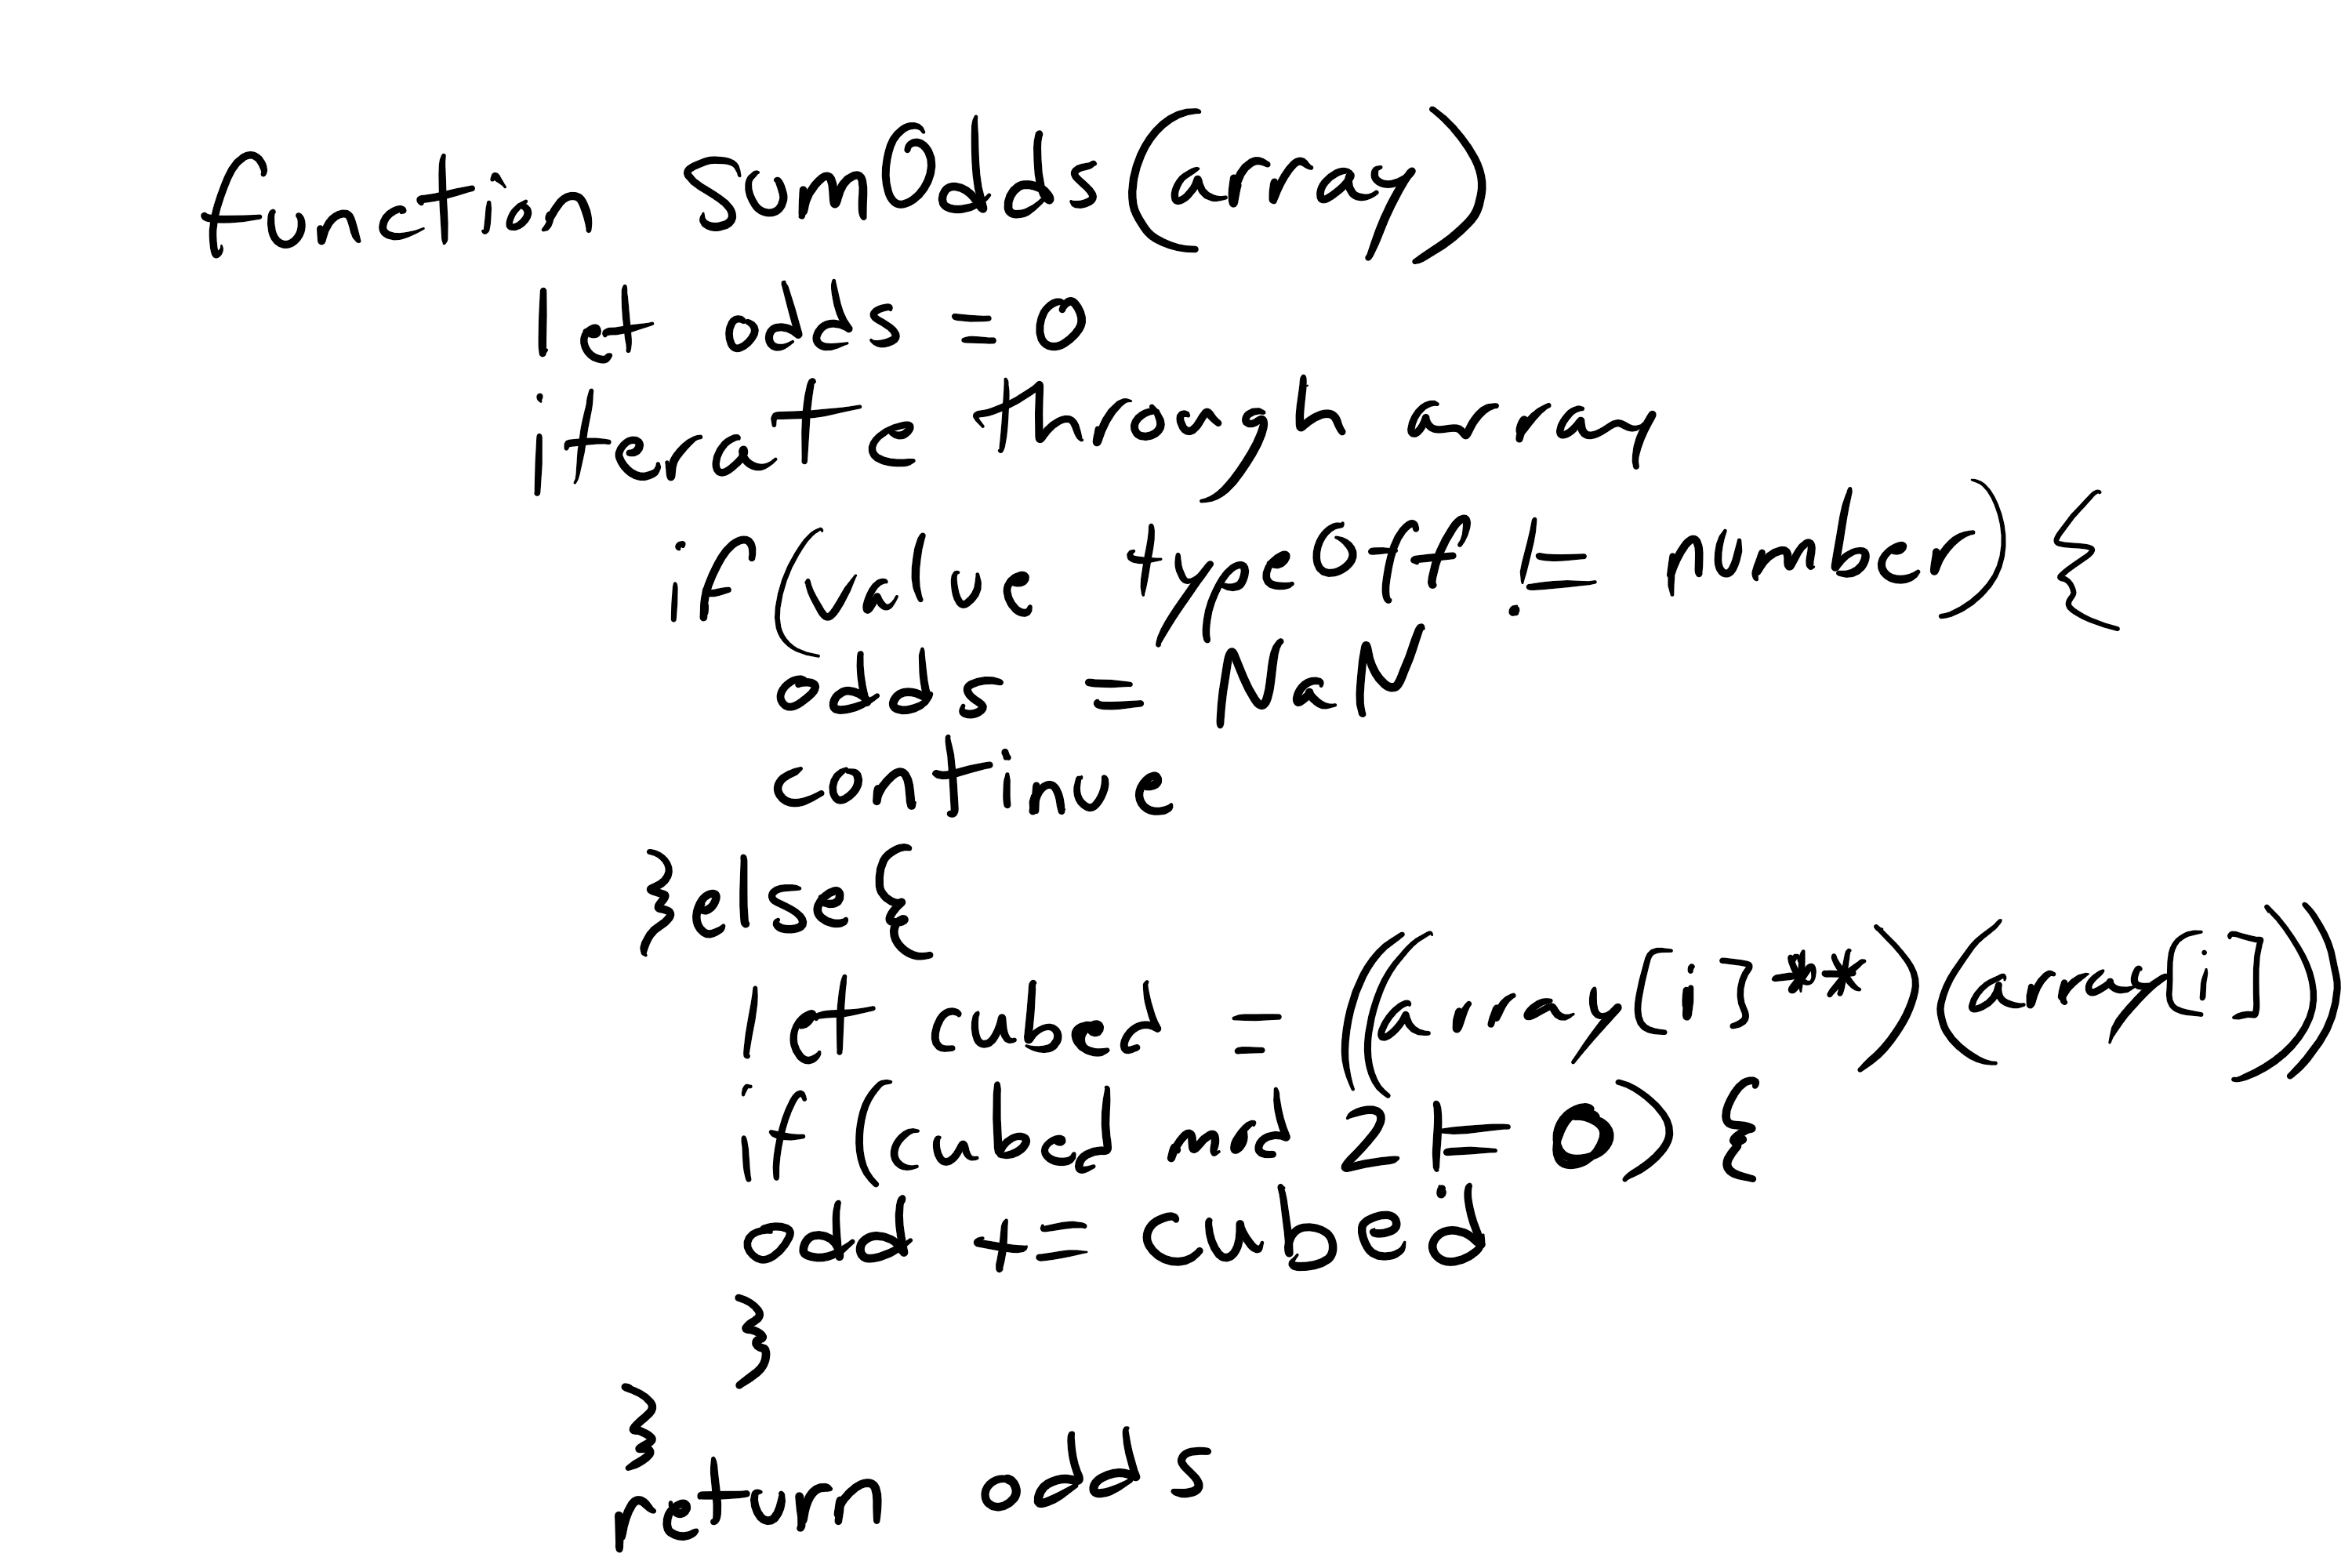 function sumOdds(array)
let odds = 0
iterate through array
if (value typeOff != number) {
odds = NaN
continue
}else{
let cubed = ((array[i]**)(array[i]))
if (cubed mod 2 != 0) {
odd += cubed
}
}
return odds